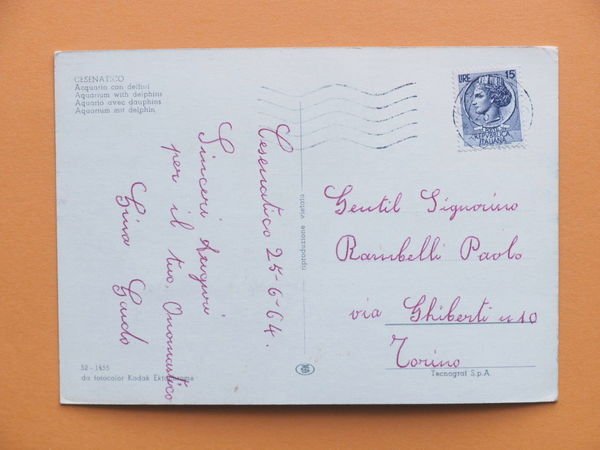 CESENATICO
Acquario con delfini
Aquarium with delphins
Aquario avec dauphins
Aquarium mit delphin
Cesenatico 25-6-64.
Sinceri Auguri
per il tuo Onomastico
Gina Guido
riproduzione vietata
LIRE 15
REPUBBLICA
ITALIANA
Gentil Signorino
Rambelli Paolo
via Ghiberti n 10
Torino
52 - 1455
da fotocolor Kodak Ektachrome
Tecnograf S.p.A.